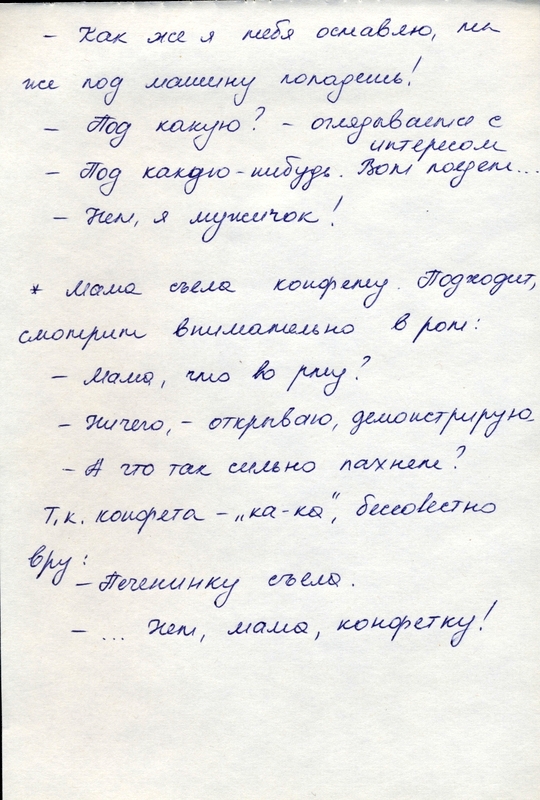 - Как же я тебя оставлю, ты
же под машину попадешь!
- Под какую? - оглядывается с
интересом
- Под какую-нибудь. Вот поедет...
- Нет, я мужичок!
* Мама съела конфету. Подходит,
смотрит внимательно в рот:
- Мама, что во рту?
- Ничего, - открываю, демонстрирую.
- А что так сильно пахнет?
Т.к. конфета - „ка-ка", бессовестно
вру:
- Печенинку съела.
- ... Нет, мама, конфетку!